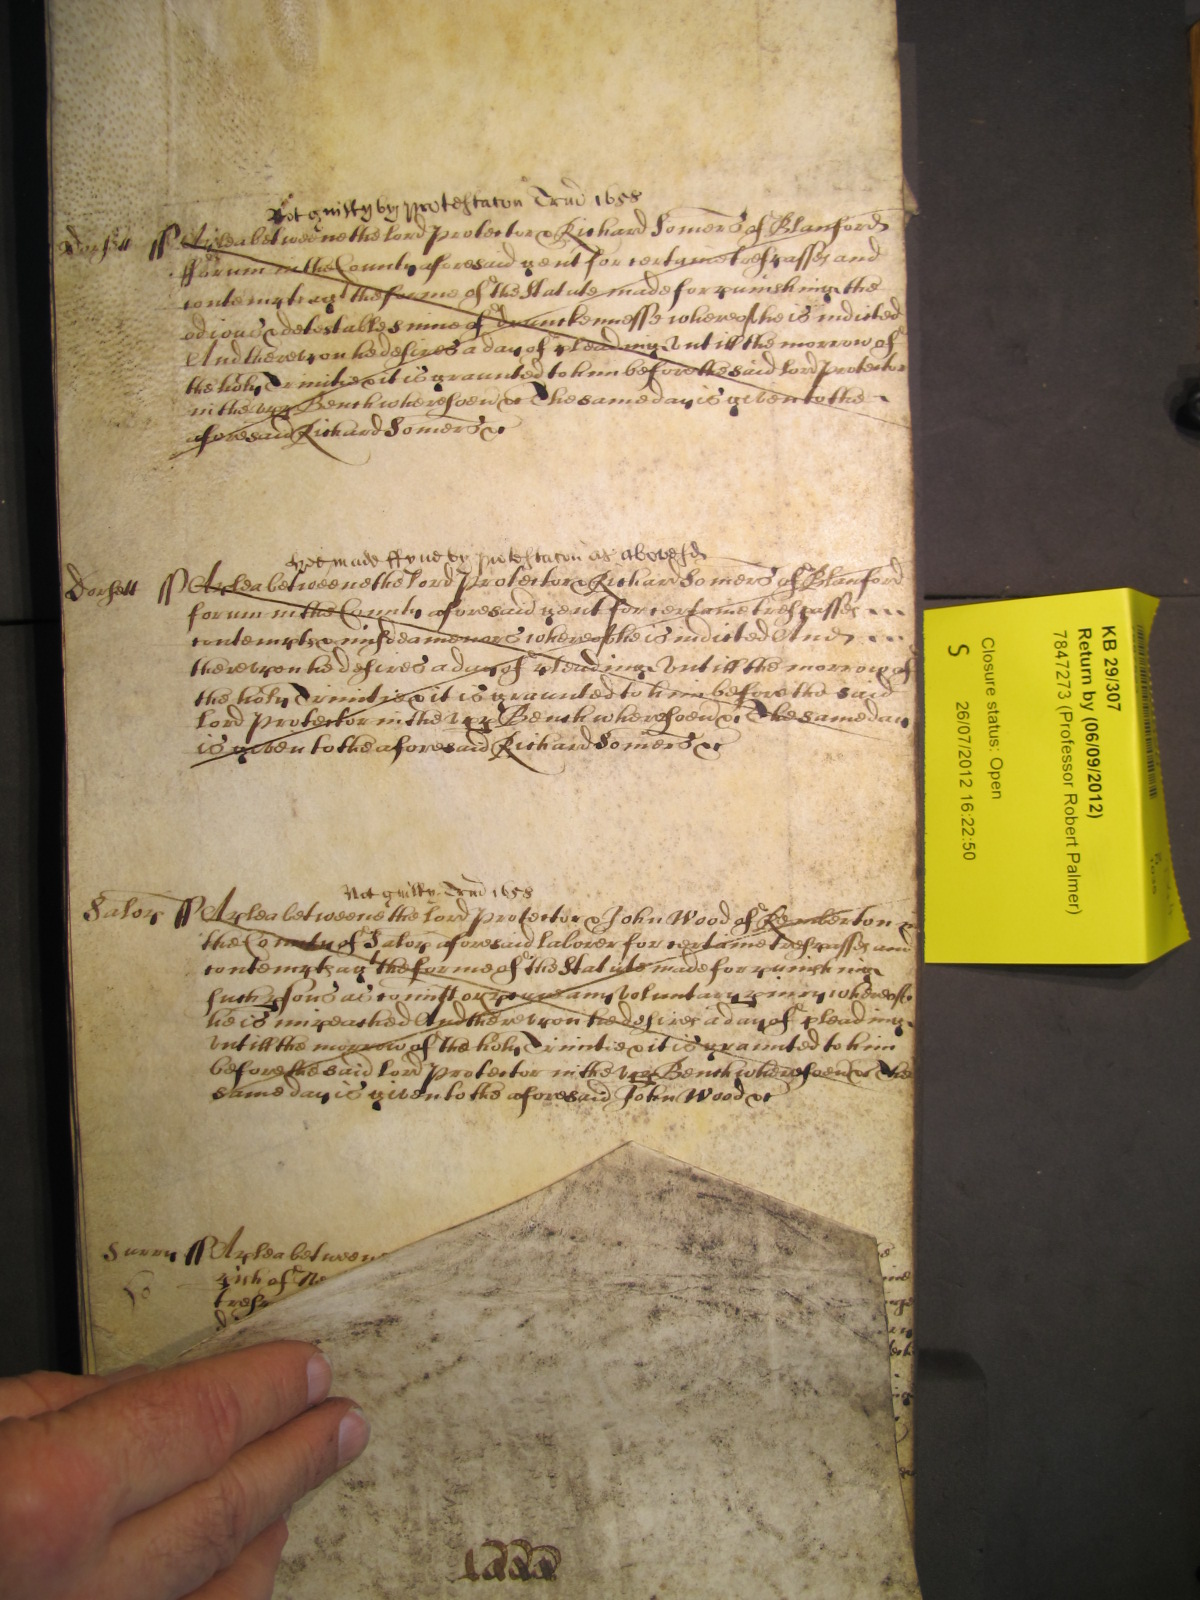 Not guilty by protestacon Trin 1658
Dorsett ss A plea betweene the Lord Protector & Richard Somers of Blanford
fforum in the County aforesaid gent for certaine trespasses and
contempts agt the forme of the Statute made for punishinge the
odious & detestable sinne of drunckennesse whereof he is indicted
And thereupon he desires a day of pleadinge untill the morrow of
the holy Trinitie & it is graunted to him before the said Lord Protector
in the upp Bench wheresoevr &c The same day is given to the
aforesaid Richard Somers &c
hee made ffyne by protestacon as abovesd
Dorsett ss A plea betweene the Lord Protector & Richard Somers of Blanford
forum in the County aforesaid gent for certaine trespasses
contempts & misdeamenors whereof he is indicted And
thereupon he desires a day of pleadinge untill the morrow of
the holy Trinitie & it is graunted to him before the said
Lord Protector in the upp Bench wheresoevr &c The same day
is given to the aforesaid Richard Somers &c
Not guilty Trin 1658
Salop ss A plea betweene the Lord Protector & John Wood of Pemberton in
the County of Salop aforesaid laborer for certaine trespasses and
contempts agt the forme of the Statute made for punishing
such psons as comitt or pcure any voluntary piury whereof
he is impeached And thereupon he desires a day of pleadinge
untill the morrow of the holy Trinitie & it is graunted to him
before the said Lord Protector in the upp Bench wheresoevr &c The
same day is given to the aforesaid John Wood &c
Surry ss A plea betweene
rish of
tresp
KB 29/307
Return by (06/09/2012)
7847273 (Professor Robert Palmer)
Closure status: Open
S 26/07/2012 16:22:50